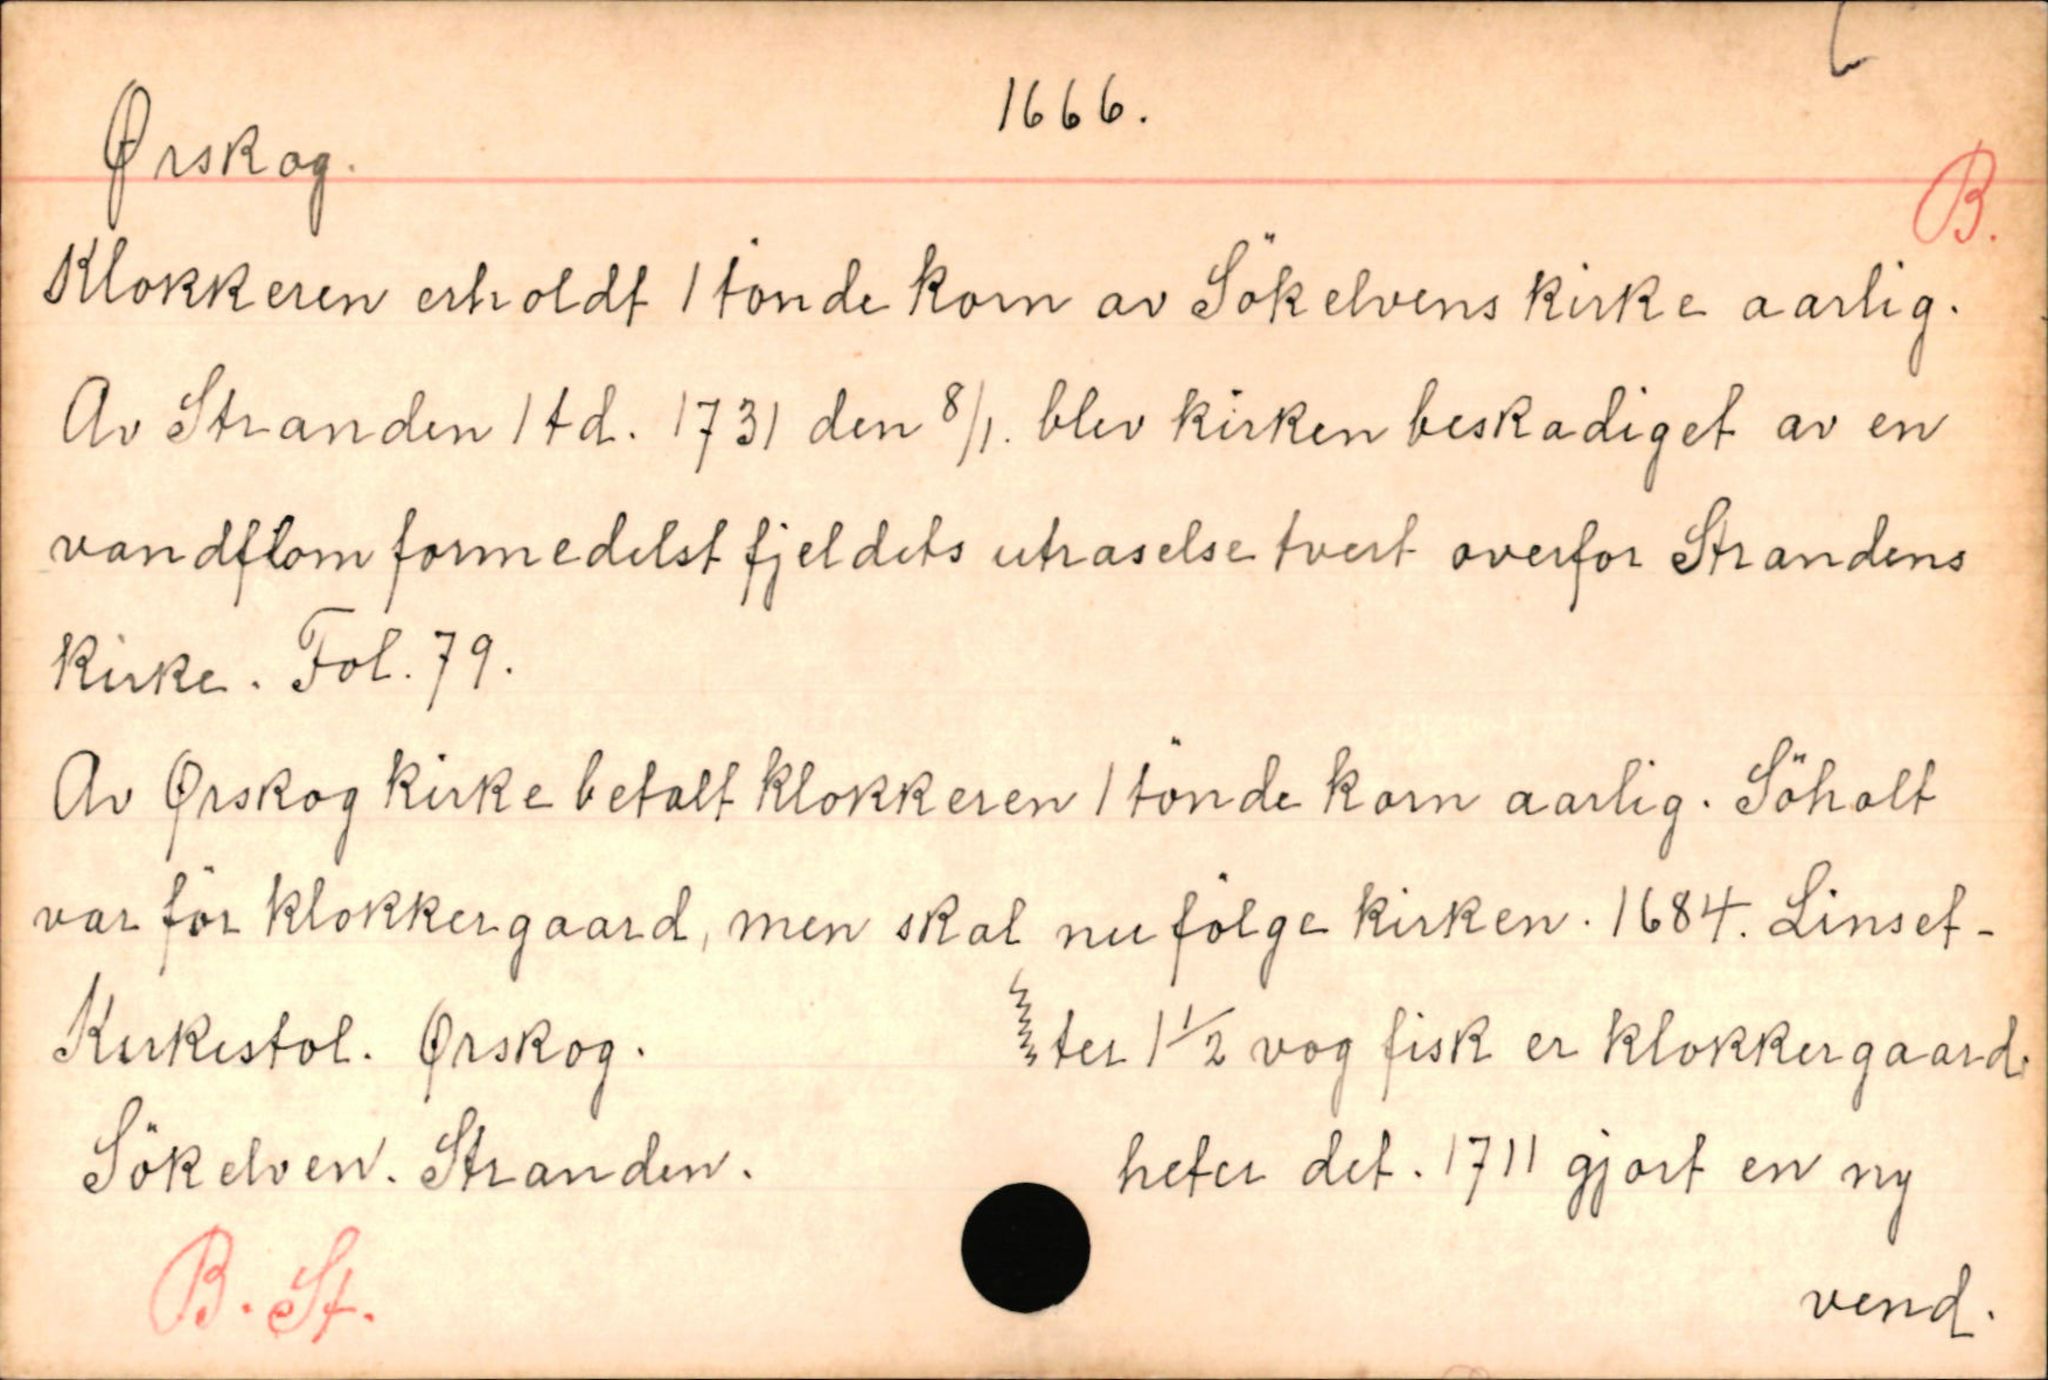 Ørskog.
1666.
B.
Klokkeren erholdt 1 tönde korn av Sökelvens kirke aarlig.
Av Stranden 1 td. 1731 den 8/1. blev kirken beskadiget av en
vandflom formedelst fjeldets utraselse tvert overfor Strandens
kirke. Fol. 79.
Av Ørskog kirke betalt klokkeren 1 tönde korn aarlig. Söholt
var för klokkergaard, men skal nu fölge kirken. 1684. Linset-
ter 1 1/2 vog fisk er klokkergaard.
heter det. 1711 gjort en ny
vend.
Kirkestol. Ørskog.
Sökelven. Stranden.
B. St.